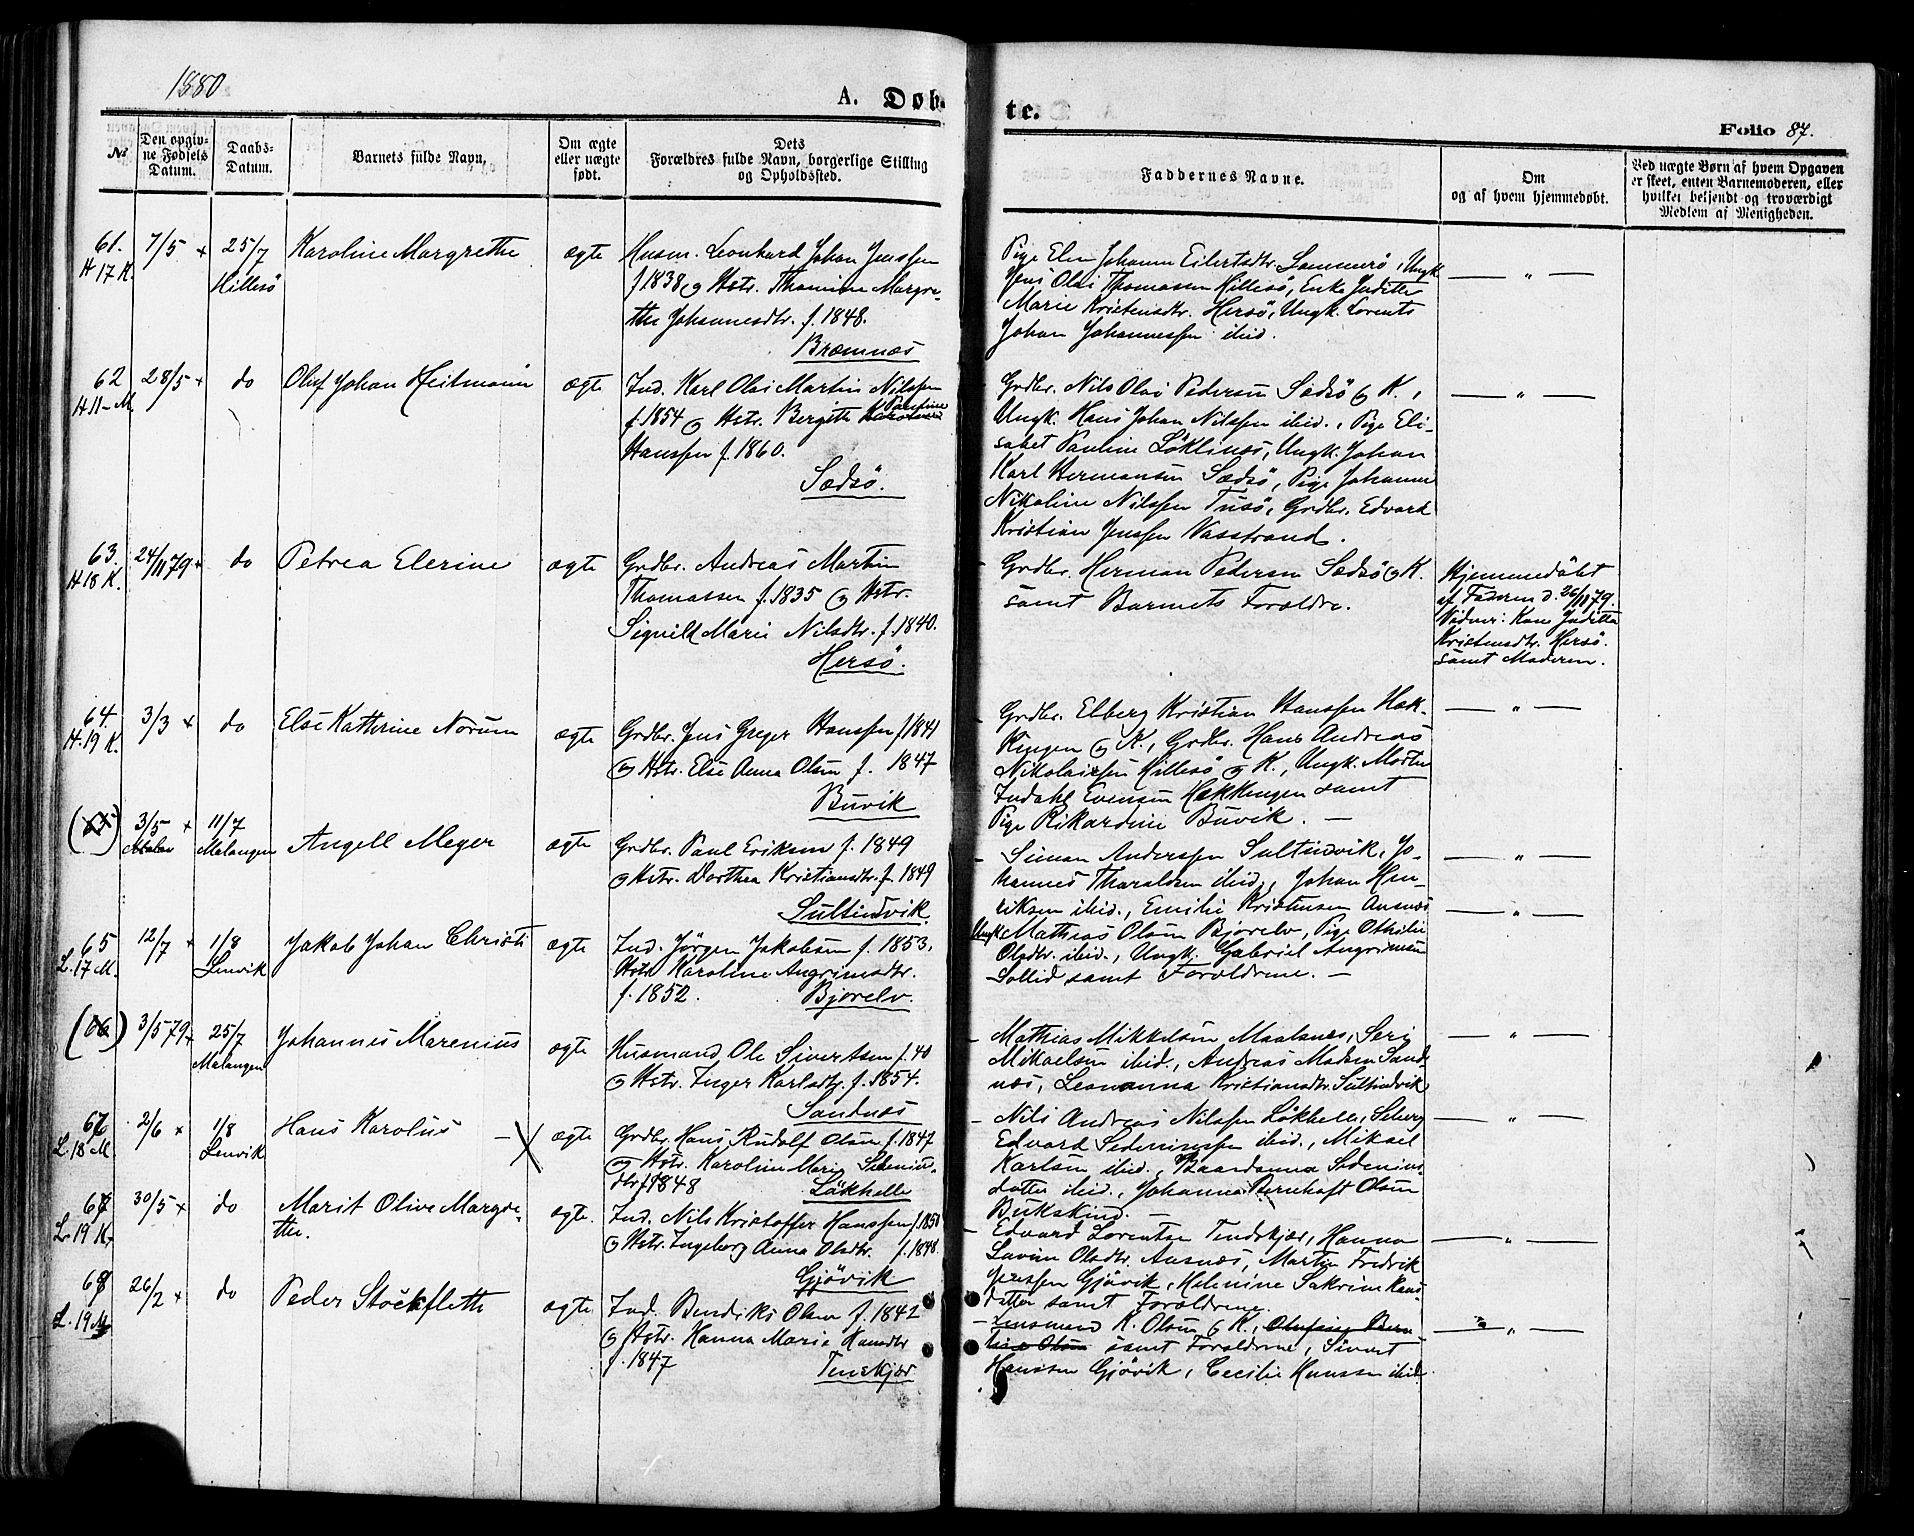 1880
A. Døb-
te.
Folio 87.
No
Den opgiv-
ne Fødsels
Datum.
Daabs-
Datum.
Barnets fulde Navn,
Om ægte
eller uægte
født.
Dets
Forældres fulde Navn, borgerlige Stilling
og Opholdssted.
Faddernes Navne.
Om
og af hvem hjemmedøbt.
Ved uægte Børn af hvem Opgaven
er skeet, enten Barnemoderen, eller
hvilket betjendt og troværdigt
Medlem af Menigheden.
61.
H 17 K.
7/5 +
25/7
Hillesö
Karoline Margrethe
ægte
Husm. Leonhard Johan Jenssen
f 1838 og Hstr. Thomine Margre-
the Johannesdtr. f. 1848.
Bræmnæs
Pige Elen Johanna Eilertsdtr. Sommerö, Ungk
Jens Olai Thomassen Hillesö, Enke Juditte
Marie Kristensdtr. Hersö, Ungk. Lorents
Johan Johannessen ibid.
— " —
62
H 11 - M
28/5 +
do
Oluf Johan Heitmann
ægte
Ind. Karl Olai Martin Nilssen
f. 1854 og Hstr. Bergith Pauline
Hanssen f. 1860.
Sædsö.
Grdbr. Nils Olai Pedersen Sædsö og K.,
Ungk. Hans Johan Nilssen ibid., Pige Eli-
sabet Pauline Löklinæs, Ungk. Johan
Karl Hermansen Sædsö, Pige Johanne
Nikoline Nilssen Tusö, Grdbr. Edvard
Kristian Jenssen Vasstrand.
— " —
63.
H 18 K.
24/11 79 +
do
Petrea Elerine
ægte
Grdbr. Andreas Martin
Thomassen f. 1835 og Hstr.
Sigvild Marie Nilsdtr. f. 1840.
Hersö.
Grdbr. Herman Pedersen Sædsö og K.
samt Barnets Forældre.
Hjemmedöbt
af Faderen d. 26/11 79.
Vidner: Kone Juditta
Kristensdtr. Hersö.
samt Moderen.
64.
H. 19 K.
3/3 +
do
Else Kathrine Norum
ægte
Grdbr. Jens Greger Hanssen f 1841
og Hstr. Else Anna Olsen f. 1847
Buvik
Grdbr. Elberg Kristian Hanssen Hæk-
kingen og K., Grdbr. Hans Andreas
Nikolaissen Hillesö og K., Ungk. Morten
Indahl Evensen Hækkingen samt
Pige Rikardine Buvik. —
— " —
(65)
3/5 +
11/7
Malangen
Angell Meyer
ægte
Grdbr. Paul Eriksen f. 1849
og Hstr. Dorthea Kristiansdtr. f. 1849
Sultindvik.
Simon Anderssen Sultindvik, Jo-
hannes Tharaldsen ibid., Johan Hen-
riksen ibid., Emilie Kristensen Ansnæs
— " —
65
L. 17 M.
12/7 +
1/8
Lenvik
Jakob Johan Christi
ægte
Ind. Jörgen Jakobsen f. 1853.
Hstr. Karoline Angrimsdtr.
f. 1852. Bjorelv.
Ungk Mathias Olsen Bjorelv, Pige Othilie
Olsdtr. ibid., Ungk. Gabriel Angrimsen
Sollid samt Forældrene. —
— " —
(66)
3/5 79 +
25/7
Malangen
Johannes Marenius
ægte
Husmand Ole Sivertsen f. 40
og Hstr. Inger Karlsdtr. f. 1854.
Sandnæs
Mathias Mikkelsen Maalsnes, Seri
Mikaelsen ibid., Andreas Madsen Sand-
næs, Leonanna Kristiansdtr. Sultindvik
— " —
66
L. 18 M.
2/6 +
1/8
Lenvik
Hans Karolus —
ægte
Grdbr. Hans Rudolf Olsen f. 1847
og Hstr. Karoline Marie Sedenius-
dtr f 1848 Lökhelle
Nils Andreas Nilssen Lökhelle, Seberg
Edvard Sedeniussen ibid., Mikael
Karlsen ibid., Baardanna Sedenius
datter ibid., Johanna Bernhoft Olsen
Bukskind. —
— " —
67
L. 19 K.
30/5 +
do
Marit Olive Margre-
the.
ægte.
Ind. Nils Kristoffer Hanssen f. 1850
og Hstr. Ingeborg Anna Olsdtr. f. 1848.
Gjövik
Edvard Lorentsen Tendskjær, Hanna
Lavine Olsdtr. Ansnæs, Martin Fredrik
Jenssen Gjövik, Helenine Sakrine Hans
datter samt Forældrene.
— " —
68
L. 19 M
26/2 +
do
Peder Stockfleth
ægte
Ind. Bendiks Olsen f. 1842
og Hstr. Hanna Marie Hansdtr
f. 1847
Tenskjær
K. Olsen og K.,
samt Forældrene, Sivert
Hanssen Gjövik, Cecilie Hanssen ibid
— " —